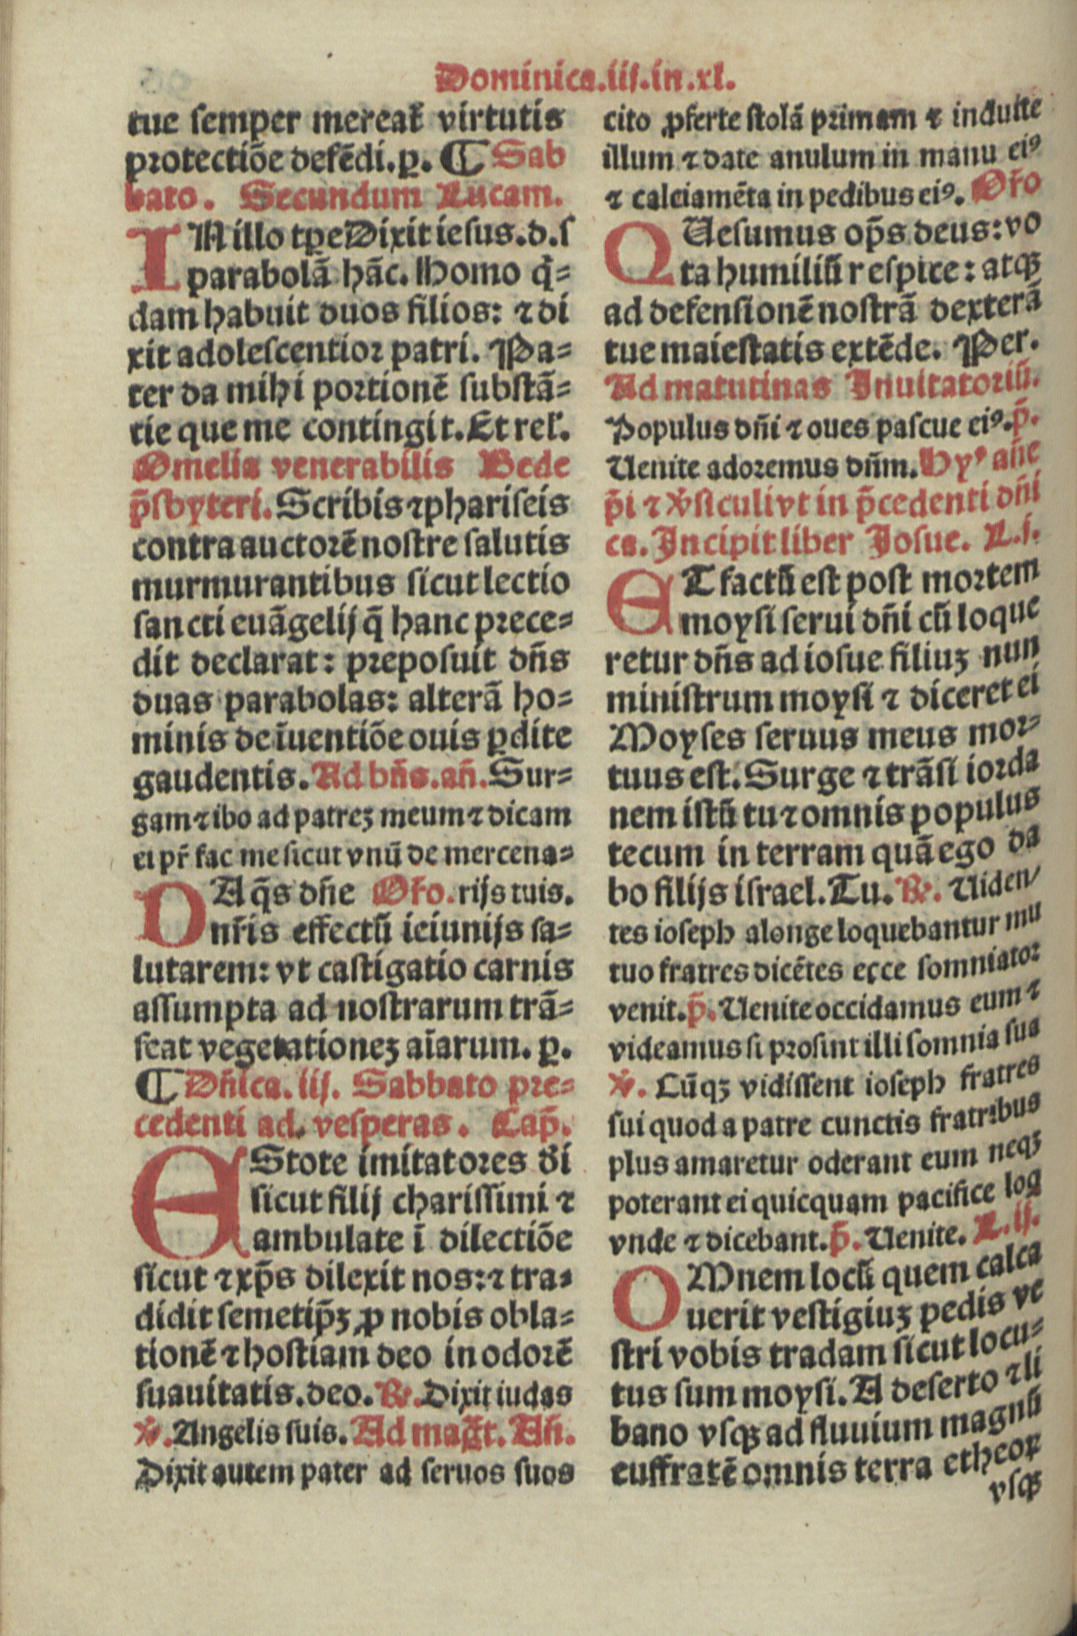 Dominica.iij.in.xl.
tue semper mereat᷑ virtutis
protectiõe defẽdi.ꝑ. ¶ Sab
bato. Secundum Lucam.
IN illo tꝑe Dixit iesus.d.s
parabolã hãc. Homo q̇̃-
dam habuit duos filios: ⁊ di
xit adolescentior patri. Pa-
ter da mihi portionẽ substã-
tie que me contingit. Et rel̃.
Omelia venerabilis Bede
p̃sbyteri. Scribis ⁊ phariseis
contra auctorẽ nostre salutis
murmurantibus sicut lectio
sancti euãgelij q̃ hanc prece-
dit declarat: preposuit dñs
duas parabolas: alterã ho-
minis de ĩuentiõe ouis ꝑdite
gaudentis. Ad bñs.añ. Sur-
gam ⁊ ibo ad patreꝫ meum ⁊ dicam
ei pr̃ fac me sicut vnũ de mercena-
DA q̃s dñe Or̃o. rijs tuis.
nr̃is effectũ ieiunijs sa-
lutarem: vt castigatio carnis
assumpta ad nostrarum trã-
seat vegetationeꝫ aĩarum. ꝑ.
¶ Dñica.iij. Sabbato pre-
cedenti ad vesperas. Cap̃.
EStote imitatores d̃i
sicut filij charissimi ⁊
ambulate ĩ dilectiõe
sicut ⁊ xp̃s dilexit nos: ⁊ tra-
didit semetip̃ꝫ ꝓ nobis obla-
tionẽ ⁊ hostiam deo in odorẽ
suauitatis.deo. ℟. Dixit iudas
℣. Angelis suis. Ad mag̃t. Añ.
Dixit autem pater ad seruos suos
cito ꝓferte stolã primam ⁊ induite
illum ⁊ date anulum in manu eiꝰ
⁊ calciamẽta in pedibus eiꝰ. Or̃o
QUesumus op̃s deus: vo
ta humiliũ respice: atqꝫ
ad defensionẽ nostrã dexterã
tue maiestatis extẽde. Per.
Ad matutinas Inuitatoriũ.
Populus dñi ⁊ oues pascue eiꝰ. p̃.
Uenite adoremus dñm. Hyꝰ añe
p̃i ⁊ ℣siculi vt in p̃cedenti dñi
ca. Incipit liber Josue. L.j.
ET factũ est post mortem
moysi serui dñi cũ loque
retur dñs ad iosue filiuꝫ nun
ministrum moysi ⁊ diceret ei
Moyses seruus meus mor-
tuus est. Surge ⁊ trãsi iorda
nem istũ tu ⁊ omnis populus
tecum in terram quã ego da
bo filijs israel. Tu. ℟. Uiden/
tes ioseph alonge loquebantur mu
tuo fratres dicẽtes ecce somniator
venit. p̃. Uenite occidamus eum ⁊
videamus si prosint illi somnia sua
℣. Cũqꝫ vidissent ioseph fratres
sui quod a patre cunctis fratribus
plus amaretur oderant eum neqꝫ
poterant ei quicquam pacifice loq
vnde ⁊ dicebant. p̃. Uenite. L.ij.
OMnem locũ quem calca
uerit vestigiuꝫ pedis ve
stri vobis tradam sicut locu-
tus sum moysi. A deserto ⁊ li
bano vsqꝫ ad fluuium magnũ
euffratẽ omnis terra etheoꝝ
vsqꝫ